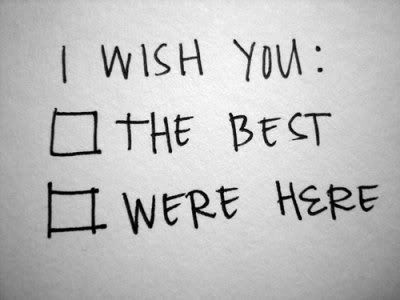 I WISH YOU:
THE BEST
WERE HERE